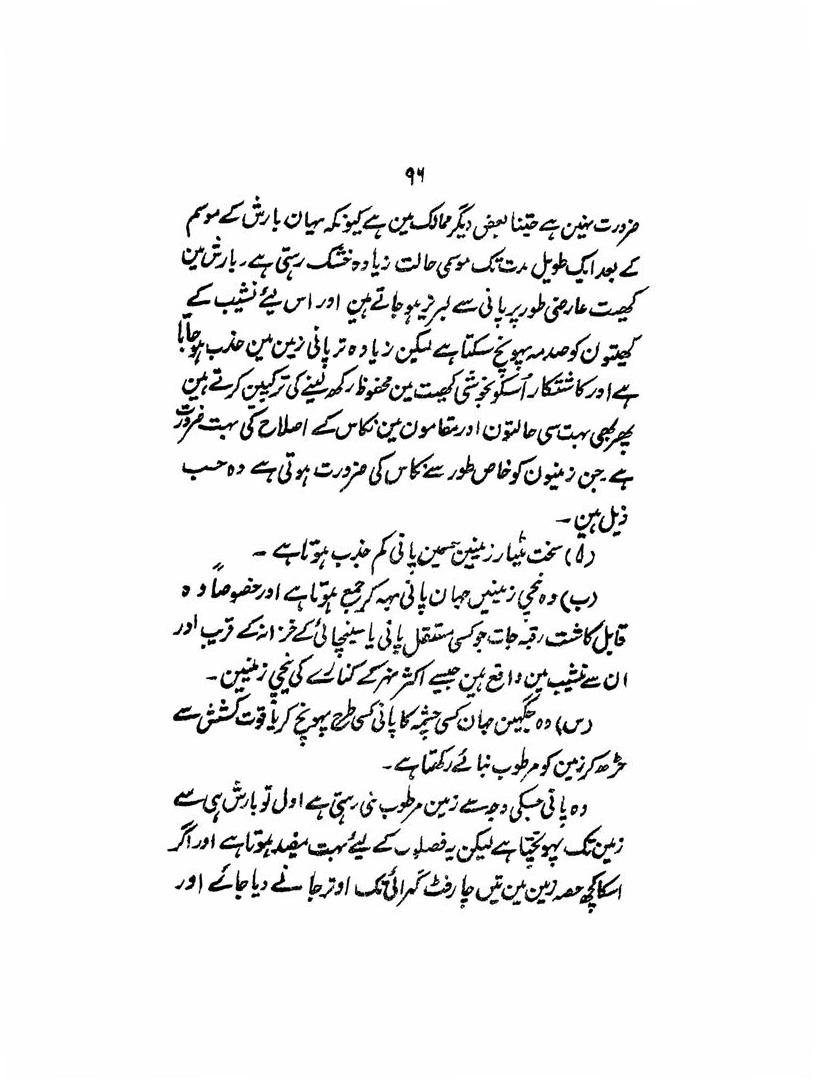 ۹۶
ضرورت نہین ہے جتنا بعض دیگر ممالک مین ہے کیونکہ یہان بارش کے موسم
کے بعد ایک طویل مدت تک موسمی حالت زیادہ خشک رہتی ہے۔ بارش مین
کھیت عارضی طور پر پانی سے لبریز ہو جاتے ہین اور اس لیئے نشیب کے
کھیتون کو صدمہ پہونچ سکتا ہے لیکن زیادہ تر پانی زمین مین جذب ہو جاتا
ہے اور کاشتکار اُسکو بخوشی کھیت مین محفوظ رکھ لینے کی ترکیبین کرتے ہین
پھر بھی بہت سی حالتون اور مقامون مین نکاس کے اصلاح کی بہت ضرورت
ہے۔ جن زمینون کو خاص طور سے نکاس کی ضرورت ہوتی ہے وہ حسب
ذیل ہین۔
(۱) سخت مٹیار زمینین جسمین پانی کم جذب ہوتا ہے۔
(ب) وہ نیچی زمینین جہان پانی بہہ کر جمع ہوتا ہے اور خصوصاً وہ
قابل کاشت رقبہ جات جو کسی مستقل پانی یا سینچائی کے خزانہ کے قریب اور
ان سے نشیب مین واقع ہین جیسے اکثر نہر کے کنارے کی نیچی زمینین۔
(س) وہ جگہین جہان کسی چشمہ کا پانی کسی طرح پہونچ کر یا قوت کشش سے
چڑھ کر زمین کو مرطوب بنائے رکھتا ہے۔
وہ پانی جسکی وجہ سے زمین مرطوب بنی رہتی ہے اول تو بارش ہی سے
زمین تک پہونچتا ہے لیکن یہ فصلون کے لیئے بہت مفید ہوتا ہے اور اگر
اسکا کچھ حصہ زمین مین تین چار فٹ گہرائی تک اوتر جانے دیا جائے اور